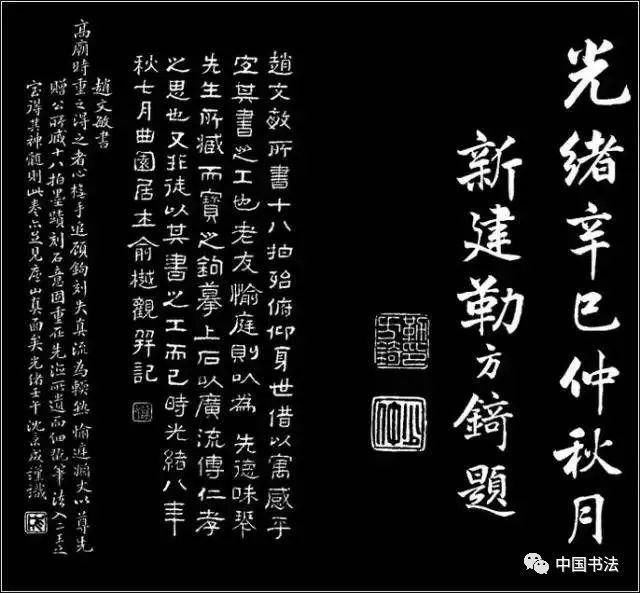 光緒辛巳仲秋月
新建勒方錡題
趙文敏所書十八拍殆俯仰身世借以寓感乎
定其書之工也老友愉庭則以為先德味琴
先生所藏而寶之鉤摹上石以廣流傳仁孝
之思也又非徒以其書之工而已時光緒八年
秋七月曲園居士俞樾觀幷記
趙文敏書
高廟時重之得之者心摹手追顧鉤刻失真流為輕熟愉庭觀大以尊先
贈公所藏十八拍墨蹟刻石意固重在先澤所遺而佃號筆法入二王正
室得其神髓則此卷亦並見廬山真面矣光緒壬午沈景成謹識
中国书法